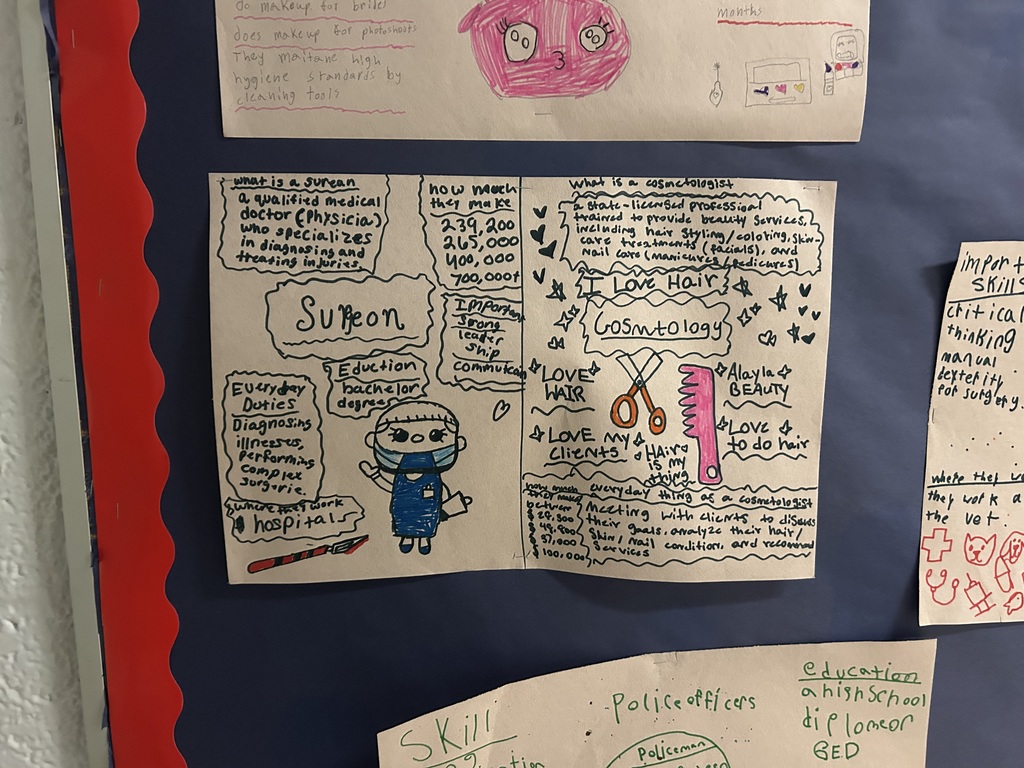 Do makeup for brides
does makeup for photoshoots
They maitane high
hygiene standards by
cleaning tools
months
what is a surean
a qualified medical
doctor (physicia)
who specializes
in diagnosing and
treating injuries.
how much
they make
239,200
265,000
400,000
700,000+
Sureon
Important
Strong
leader
ship
commutcan
Eduction
bachelor
degrees
Everyday
Duties
Diagnosing
illnesses,
performing
complex
surgerie.
where they work
hospital
what is a cosmetologist
a state-licensed professional
trained to provide beauty services,
including hair styling/coloring, skin-
care treatments (facials), and
nail care (manicures/pedicures)
I Love Hair
Cosmtology
LOVE
HAIR
Alayla
BEAUTY
LOVE MY
clients
HAir
is my
thing
LOVE
to do hair
how much
they make
between
$
$
$
$ 100,000
everyday thing as a cosmetologist
Meeting with clients to discuss
their goals, analyze their hair/
skin/nail condition, and recommend
services
import
skills
critical
thinking
manual
dexterity
for surgery.
where they wo
they work a
the vet.
Skill
Police officers
Policeman
education
a high School
diplomeor
GED